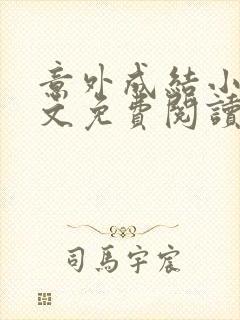 意外成結小
文免費閱讀
司馬宇宸